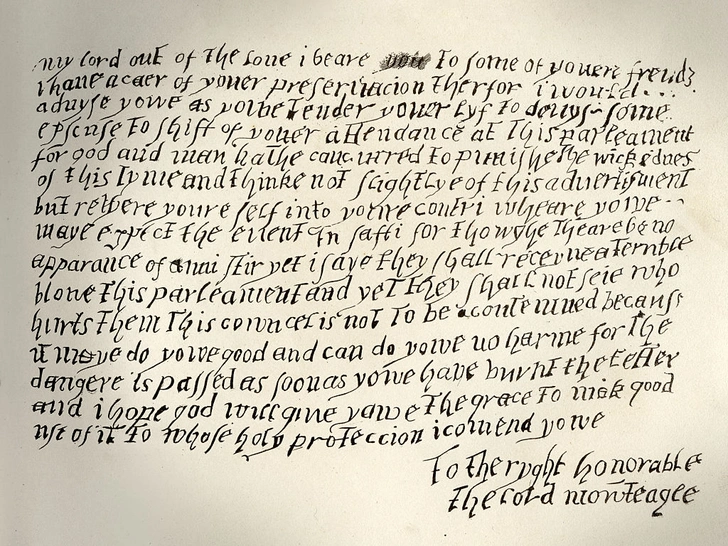 my lord out of the loue i beare to some of youere frends
i haue a caer of youer preseruacion therfor i would
aduyse yowe as yowe tender youer lyf to deuys some
epscuse to shift of youer attendance at this parleament
for god and man hathe concurred to punishe the wickednes
of this tyme and thinke not slightlye of this aduertisment
but retyere youre self into youre contri wheare yowe
maye expect the euent in safti for thowghe theare be no
apparance of anni stir yet i saye they shall receyue a terrible
blowe this parleament and yet they shall not seie who
hurts them this cowncel is not to be acontemned because
it maye do yowe good and can do yowe no harme for the
dangere is passed as soon as yowe haue burnt the letter
and i hope god will giue yowe the grace to mak good
use of it to whose holy proteccion i comend yowe
To the ryght honorable
the lord mowteagle